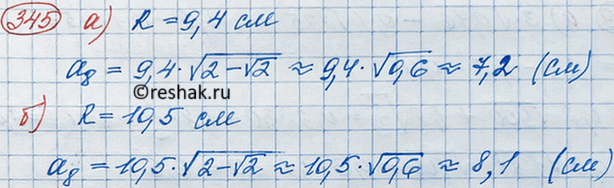 345 а) R = 9,4 см
a₈ = 9,4·√(2−√2) ≈ 9,4·√0,6 ≈ 7,2 (см)
©reshak.ru
б) R = 10,5 см
a₈ = 10,5·√(2−√2) ≈ 10,5·√0,6 ≈ 8,1 (см)